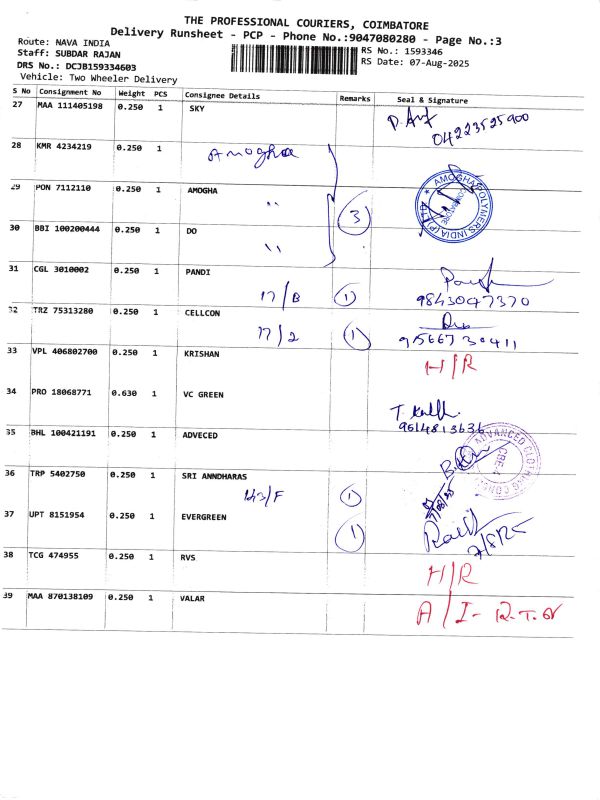 THE PROFESSIONAL COURIERS, COIMBATORE
Delivery Runsheet - PCP - Phone No.:9047080280 - Page No.:3
Route: NAVA INDIA
Staff: SUBDAR RAJAN
DRS No.: DCJB159334603
Vehicle: Two Wheeler Delivery
RS No.: 1593346
RS Date: 07-Aug-2025
S No Consignment No Weight PCS Consignee Details Remarks Seal & Signature
27 MAA 111405198 0.250 1 SKY
04223525900
28 KMR 4234219 0.250 1 Amogha
29 PON 7112110 0.250 1 AMOGHA
" 3
AMOGHA POLYMERS INDIA (P) LTD
COIMBATORE
30 BBI 100200444 0.250 1 DO
"
31 CGL 3010002 0.250 1 PANDI
17/B 1 9843047370
32 TRZ 75313280 0.250 1 CELLCON
17/2 1 9156673 0411
33 VPL 406802700 0.250 1 KRISHAN H/R
34 PRO 18068771 0.630 1 VC GREEN
9614813636
35 BHL 100421191 0.250 1 ADVECED
ADVANCED CLOTHING
CBE-4
36 TRP 5402750 0.250 1 SRI ANNDHARAS
143/F 1
37 UPT 8151954 0.250 1 EVERGREEN
1 7/8/25
38 TCG 474955 0.250 1 RVS H/R
39 MAA 870138109 0.250 1 VALAR A/I- R.T.O